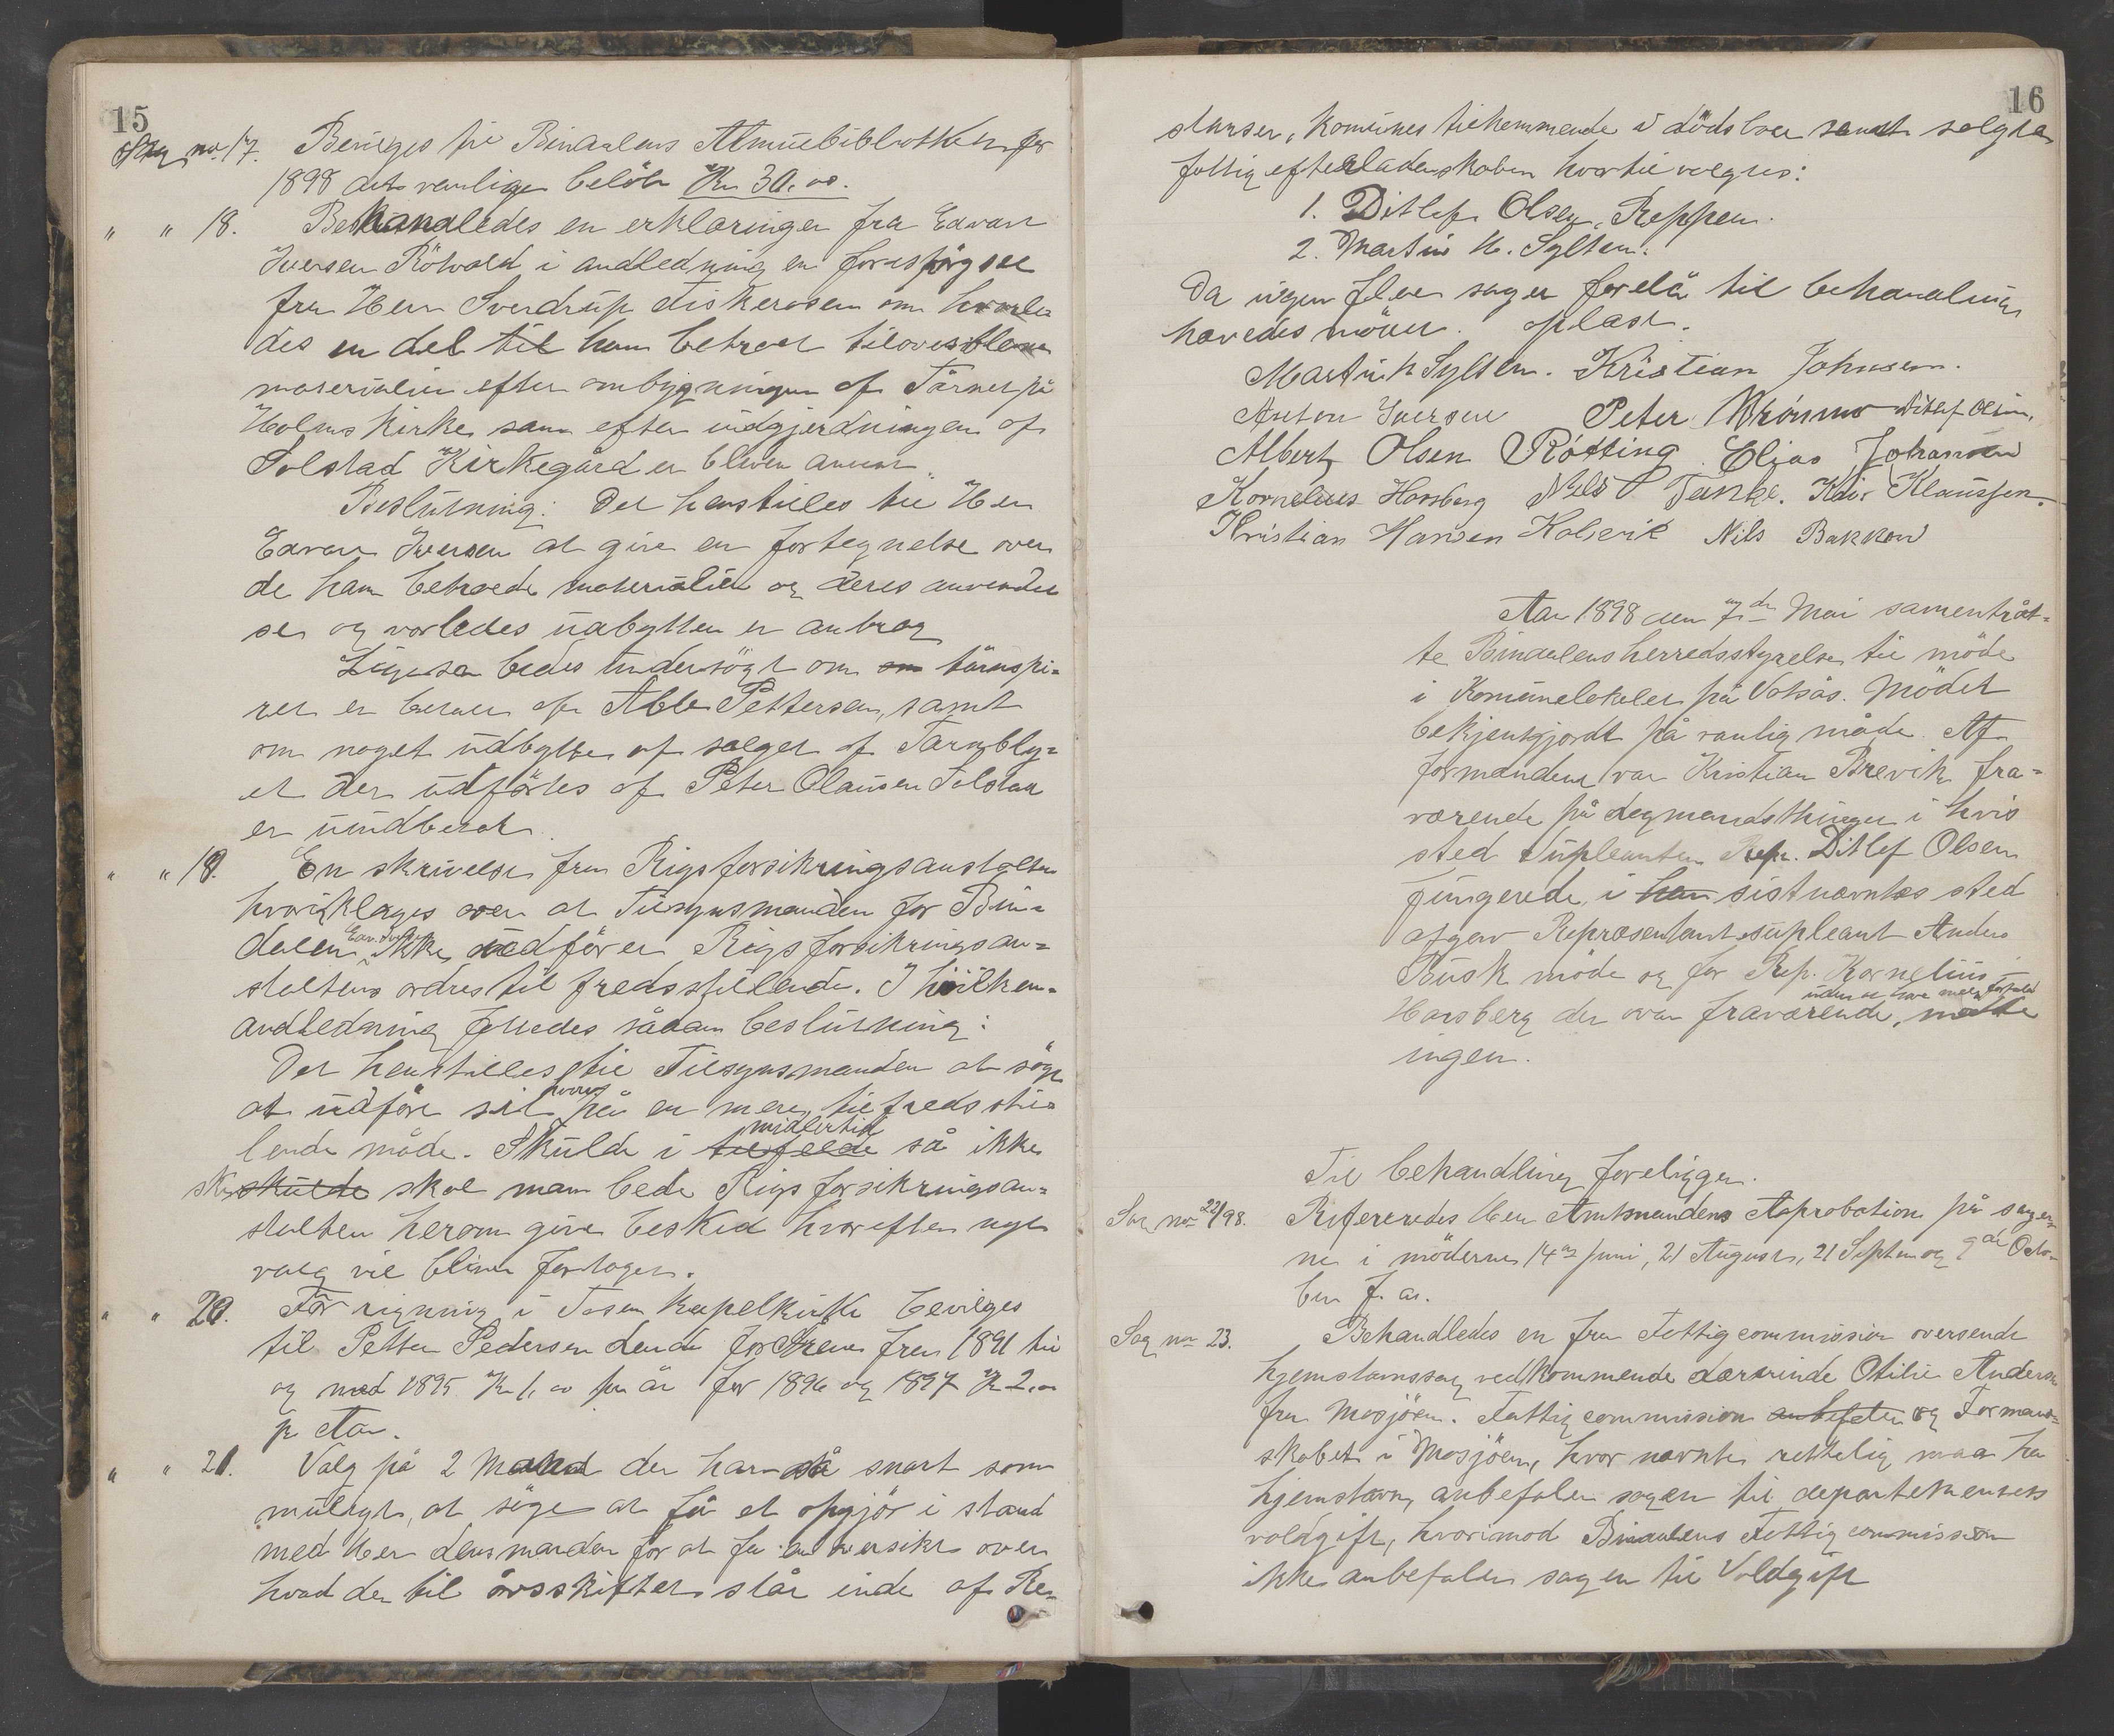 15
Sag no 17. Beviges til Bindalens Almuebibliothek for
1898 det vanlige belöb Kr 30.00.
" " 18. Behandledes en erklæringen fra Edvard
Iversen Röhveld i andledning en forespörgsel
fra Herr Sverdrup Fiskerosen om hvorle-
des en del til ham betroet tiloversblevne
materialier efter ombygningen af Tårnet på
Holms Kirke samt efter indgjerdningen af
Solstad Kirkegård er bleven anvendt.
Beslutning: Det henstilles til Herr
Edvard Iversen at give en fortegnelse over
de ham betroede materialier og deres anvendel
se og vorledes udbytten er anbragt
Ligesaa bedes undersögt om tårnspi-
ret er betalt af Abel Pettersen, samt
om noget udbytte af salget af Tårnbly-
et der udförtes af Peter Clausen Solstad
er inndbetalt.
" " 19. En skrivelse fra Rigsforsikringsanstalten
hvori klages over at Tilsynsmanden for Bin-
dalen Edv. Iversen ikke udförer Rigsforsikringsan-
staltens ordres tilfredsstillende. I hvilken-
andledning fattedes sådan beslutning:
Det henstilles til Tilsynsmanden at söge
at udföre sit hverv på en mere tilfredsstil-
lende måde. Skulde i tilfelde midlertid så ikke
ske skulde skal man bede Rigsforsikringsan-
stalten herom give besked hvorefter nyt
valg vil blive foretaget.
" " 20. For rigning i Tosen kapelkirke bevilges
til Petter Pedersen Lande for årene fra 1891 til
og med 1895 Kr 1,00 pr år for 1896 og 1897 Kr 2,00
pr Aar.
" " 21. Valg på 2 Mand der har så snart som
muligt, at söge at få et opgjör i stand
med Herr Lensmanden for at få en oversikt over
hvad der til årsskiftet står inde af Re-
16
stanser, komunes tilkommende i dödsboer samt solgte
fattig efterladenskaber hvortil valgtes:
1. Ditlef Olsen, Reppen.
2. Martin H. Sylten.
Da ingen flere sager forelå til behandling
hævedes mödet. oplæst.
Martin H Sylten. Kristian Johnsen.
Anton Iversen Peter Brönmo Ditlef Olsen.
Albert Olsen Rötting Elias Johansen
Kornelius Horsberg Nels P Terske. Klaussen.
Kristian Hansen Holsvik Nils Bakken
Aar 1898 den 7de Mai sammentråt-
te Bindalens herredsstyrelse til möde
i Komunelokalet på Vatsås. Mödet
bekjentgjordt på vanlig måde. Af
formændene var Kristian Brevik fra-
værende på Lagmandsthinget i hvis
sted Supleanten Repr. Ditlef Olsen
fungerede, i han sistnævntes sted
afgav Repræsentantsupleant Anders
Busk möde og for Rep. Kornelius
Horsberg der var fraværende, uden at have meldt forfald mödte
ingen.
Til behandling foreligger.
Sag no 22/98. Refereredes Herr Amtmandens Aprobation på sager-
ne i möderne 14de Juni, 21 August, 21 Septem og 9de Octo-
ber f. a.
Sag no 23. Behandledes en fra Fattigcommission oversendt
hjemstavnssag vedkommende Lærerinde Otilie Andersen
fra Mosjöen. Fattigcommission anbefaler og Formand-
skabet i Mosjöen, hvor nævnte rettelig maa ha
hjemstavn, anbefaler sagen til departementets
voldgift, hvorimod Bindalens Fattigcommission
ikke anbefaler sagen til Voldgift